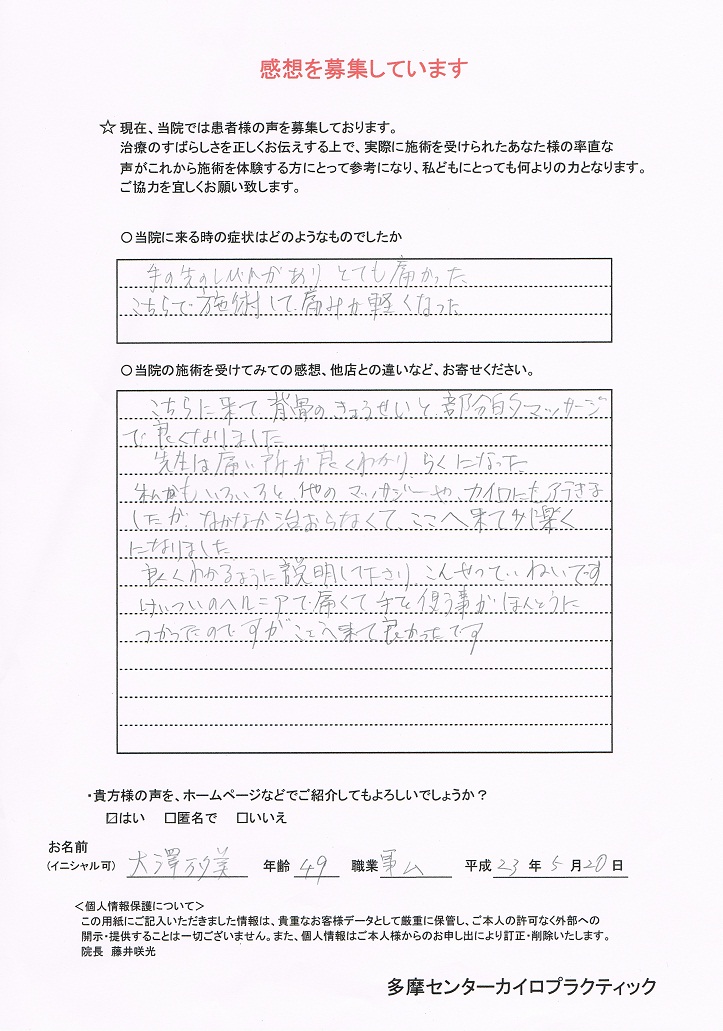 感想を募集しています
☆ 現在、当院では患者様の声を募集しております。
治療のすばらしさを正しくお伝えする上で、実際に施術を受けられたあなた様の率直な
声がこれから施術を体験する方にとって参考になり、私どもにとっても何よりの力となります。
ご協力を宜しくお願い致します。
○当院に来る時の症状はどのようなものでしたか
手の先のしびれがあり とても痛かった
こちらで施術して痛みが軽くなった
○当院の施術を受けてみての感想、他店との違いなど、お寄せください。
こちらに来て 背骨のきょうせいと 部分的マッサージ
で良くなりました
先生は痛い所が良くわかり らくになった
いろいろと 他の マッサージーや、カイロにも 行きま
したが なかなか治おらなくて ここへ来て 楽く
になりました
良くわかるように説明して下さり ていねいです
けいついのヘルニアで痛くて 手を使う事がほんとうに
つかったのですが ここへ来て良かったです
・貴方様の声を、ホームページなどでご紹介してもよろしいでしょうか？
☑はい □匿名で □いいえ
お名前
(イニシャル可) 大澤 美 年齢 49 職業 平成 23 年 5 月 20 日
＜個人情報保護について＞
この用紙にご記入いただきました情報は、貴重なお客様データとして厳重に保管し、ご本人の許可なく外部への
開示・提供することは一切ございません。また、個人情報はご本人様からのお申し出により訂正・削除いたします。
院長 藤井咲光
多摩センターカイロプラクティック